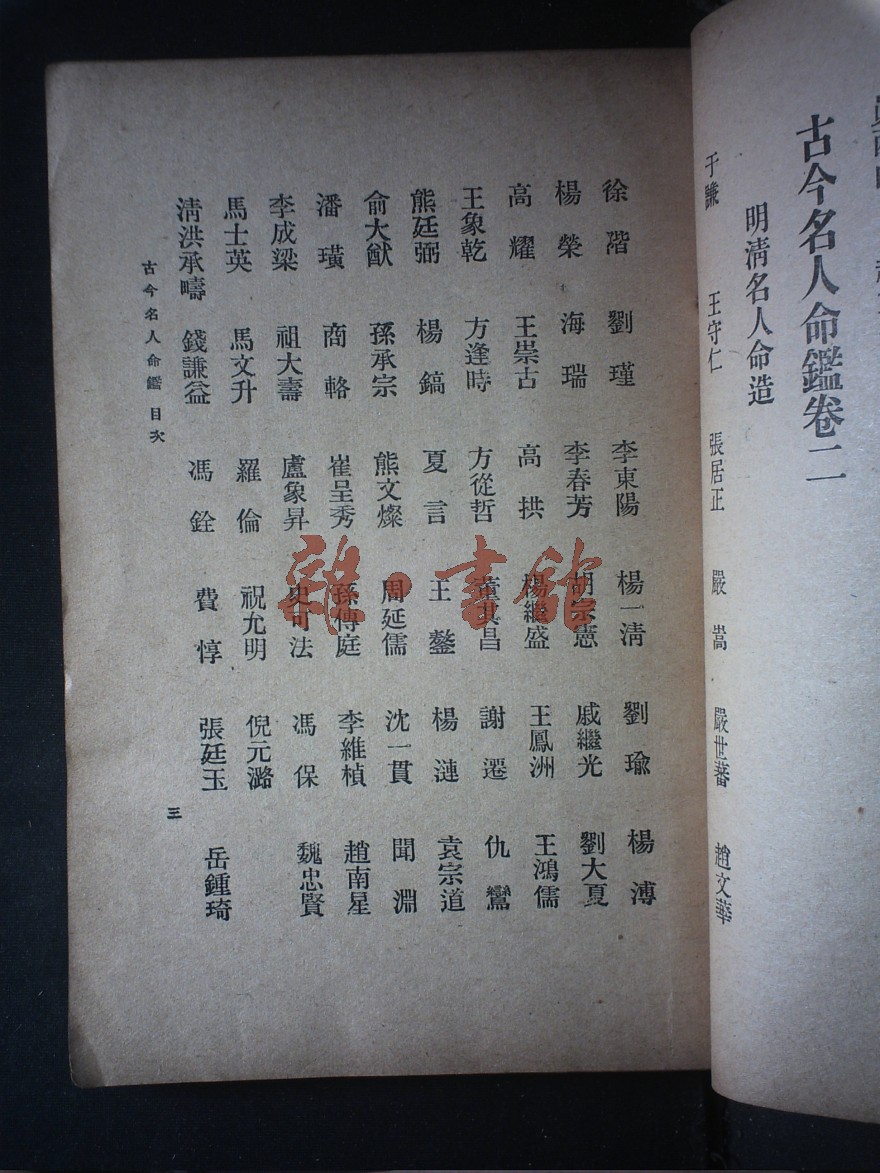 古今名人命鑑卷二
明清名人命造
于謙 王守仁 張居正 嚴嵩 嚴世蕃 趙文華
徐階 劉瑾 李東陽 楊一淸 劉瑜 楊溥
楊榮 海瑞 李春芳 胡宗憲 戚繼光 劉大夏
高耀 王崇古 高拱 楊繼盛 王鳳洲 王鴻儒
王象乾 方逢時 方從哲 董其昌 謝遷 仇鸞
熊廷弼 楊鎬 夏言 王鏊 楊漣 袁宗道
俞大猷 孫承宗 熊文燦 周延儒 沈一貫 聞淵
潘璜 商輅 崔呈秀 孫傳庭 李維楨 趙南星
李成梁 祖大壽 盧象昇 史可法 馮保 魏忠賢
馬士英 馬文升 羅倫 祝允明 倪元潞
淸洪承疇 錢謙益 馮銓 費惇 張廷玉 岳鍾琦
古今名人命鑑 目次
三
雜·書館